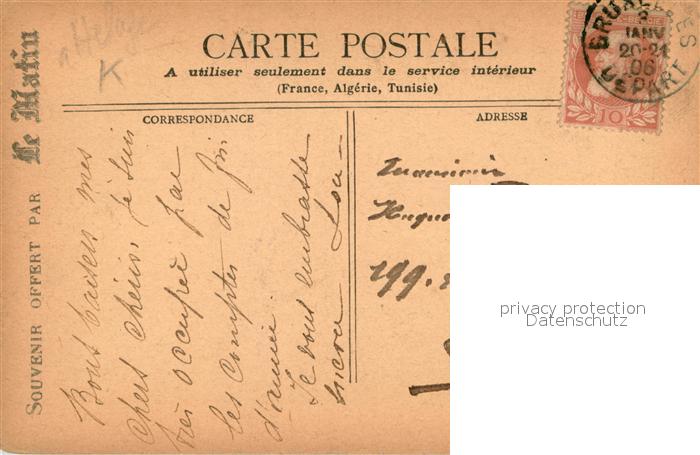 CARTE POSTALE
A utiliser seulement dans le service intérieur
(France, Algérie, Tunisie)
SOUVENIR OFFERT PAR Le Matin
K
CORRESPONDANCE
Bons baisers mes
chers chéris, je suis
très occupée par
les comptes de fin
d'année.
Je vous embrasse
encore
ADRESSE
199.
BRUXELLES
JANV
20-21
06
DEPART
10
privacy protection
Datenschutz